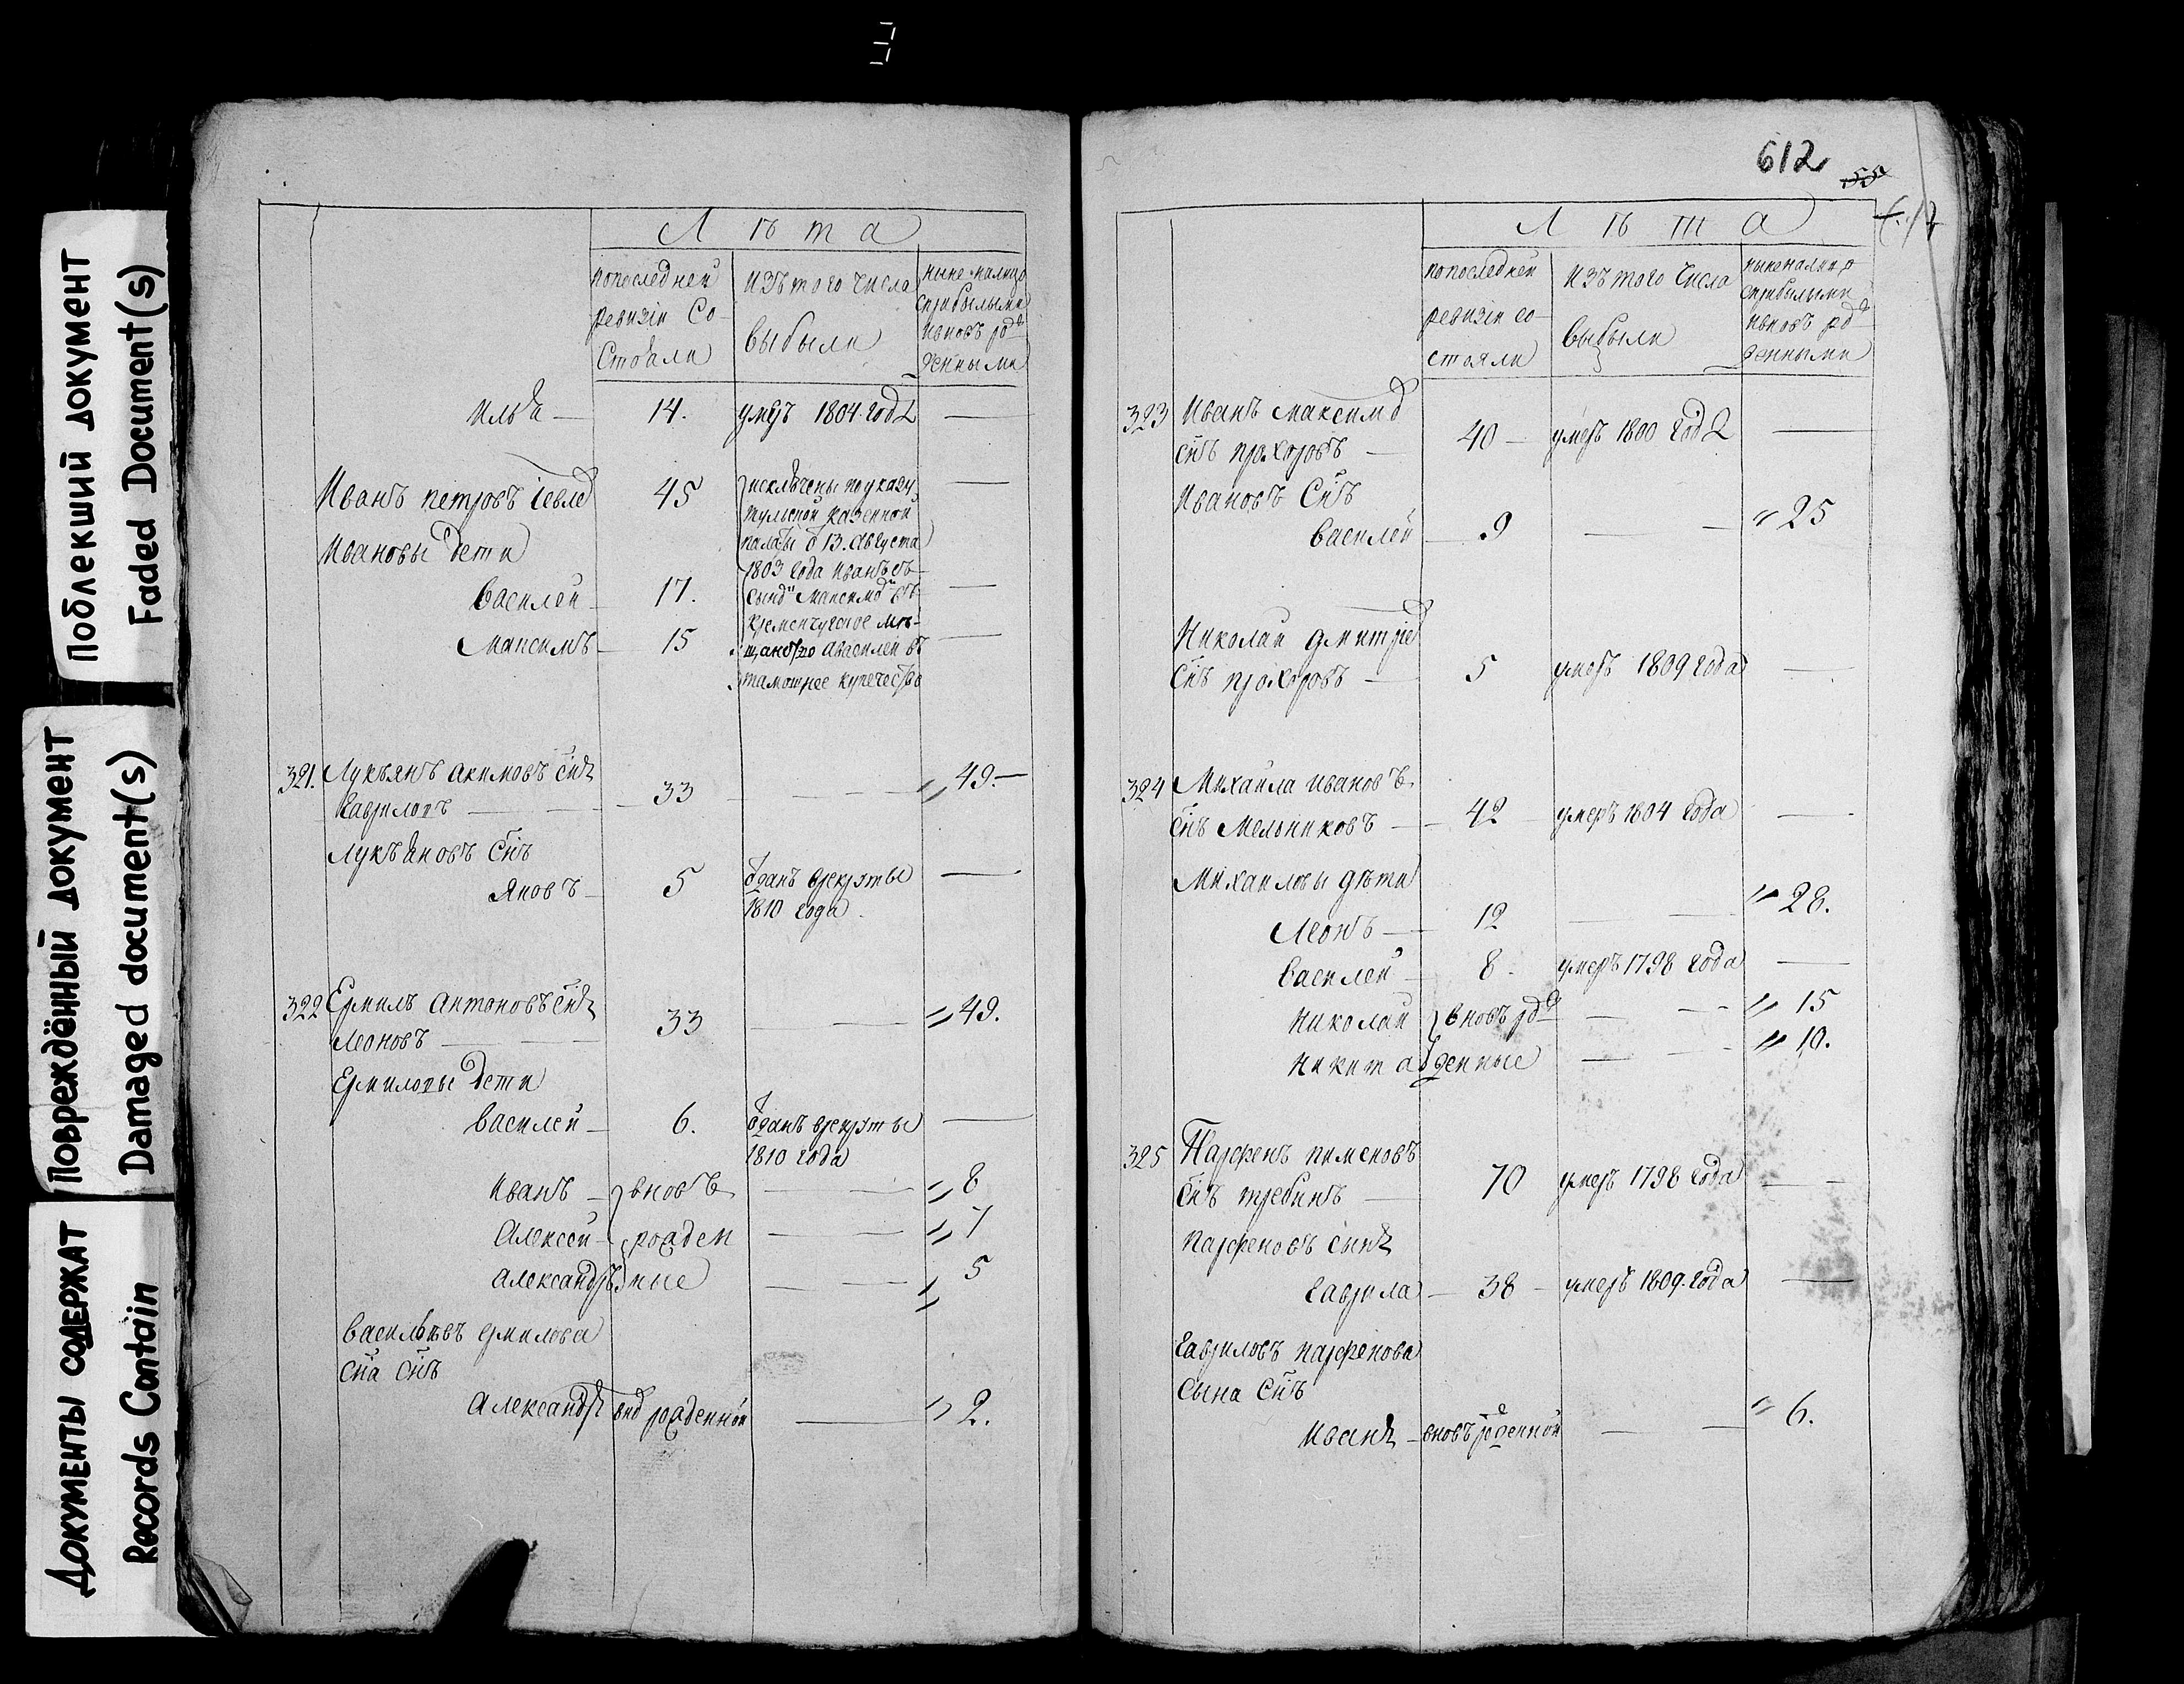 Поблекший документ
Faded Document(s)
Повреждённый документ
Damaged document(s)
Документы содержат
Records Contain
Лѣта
попоследней ревизіи Состояли
изътого числа выбыли
ныне налицо сприбылыми ивновь рожденными
Илья — 14. умеръ 1804. года —
Иванъ петровъ 45 исключены поуказу —
тульской казенной
Ивановы дети палаты от 13. августа
1803 года иванъ съ
Василей — 17. сыномъ Максимомъ въ —
кременчугское мѣ-
Максимъ — 15 щанство авасилей въ —
тамошнее купечество
321. Лукьянъ акимовъ сынъ
Гавриловъ — 33 — — 49.—
Лукьяновъ Снъ
Яновъ — 5 отданъ врекруты —
1810 года.
322 Ермилъ антоновъ сынъ
Леоновъ — 33 — — 49.
Ермиловы дети
Василей — 6. отданъ врекруты —
1810 года
Иванъ — вновъ — — 8
Алексей — рожден — — 7
Александръ ные — — 5
Васильевъ ермилова
Сна Снъ
Александръ внов рожденной — 2.
612
55
Лѣта
попоследней ревизіи состояли
изътого числа выбыли
ныне налицо сприбылыми ивновъ рожденными
323 Иванъ максимов
снъ прохоровъ — 40 — умеръ 1800 года —
Ивановъ Снъ
Василей — 9 — — 25
Николай дмитріев
Снъ прохоровъ — 5 умеръ 1809 года —
324 Михайла ивановъ
снъ Мельниковъ — 42 — умеръ 1804 года —
Михайловы дѣти
Леонъ — 12 — — 28.
Василей — 8 — умеръ 1798 года —
Николай вновъ рож — — 15
Никита денные — — 10.
325 Парфенъ пименовъ
Снъ требинъ — 70 умеръ 1798 года —
Парфеновъ сынъ
Гаврила — 38 — умеръ 1809. года —
Гавриловъ парфенова
Сына Снъ
Иванъ — вновъ рожденной — — 6.